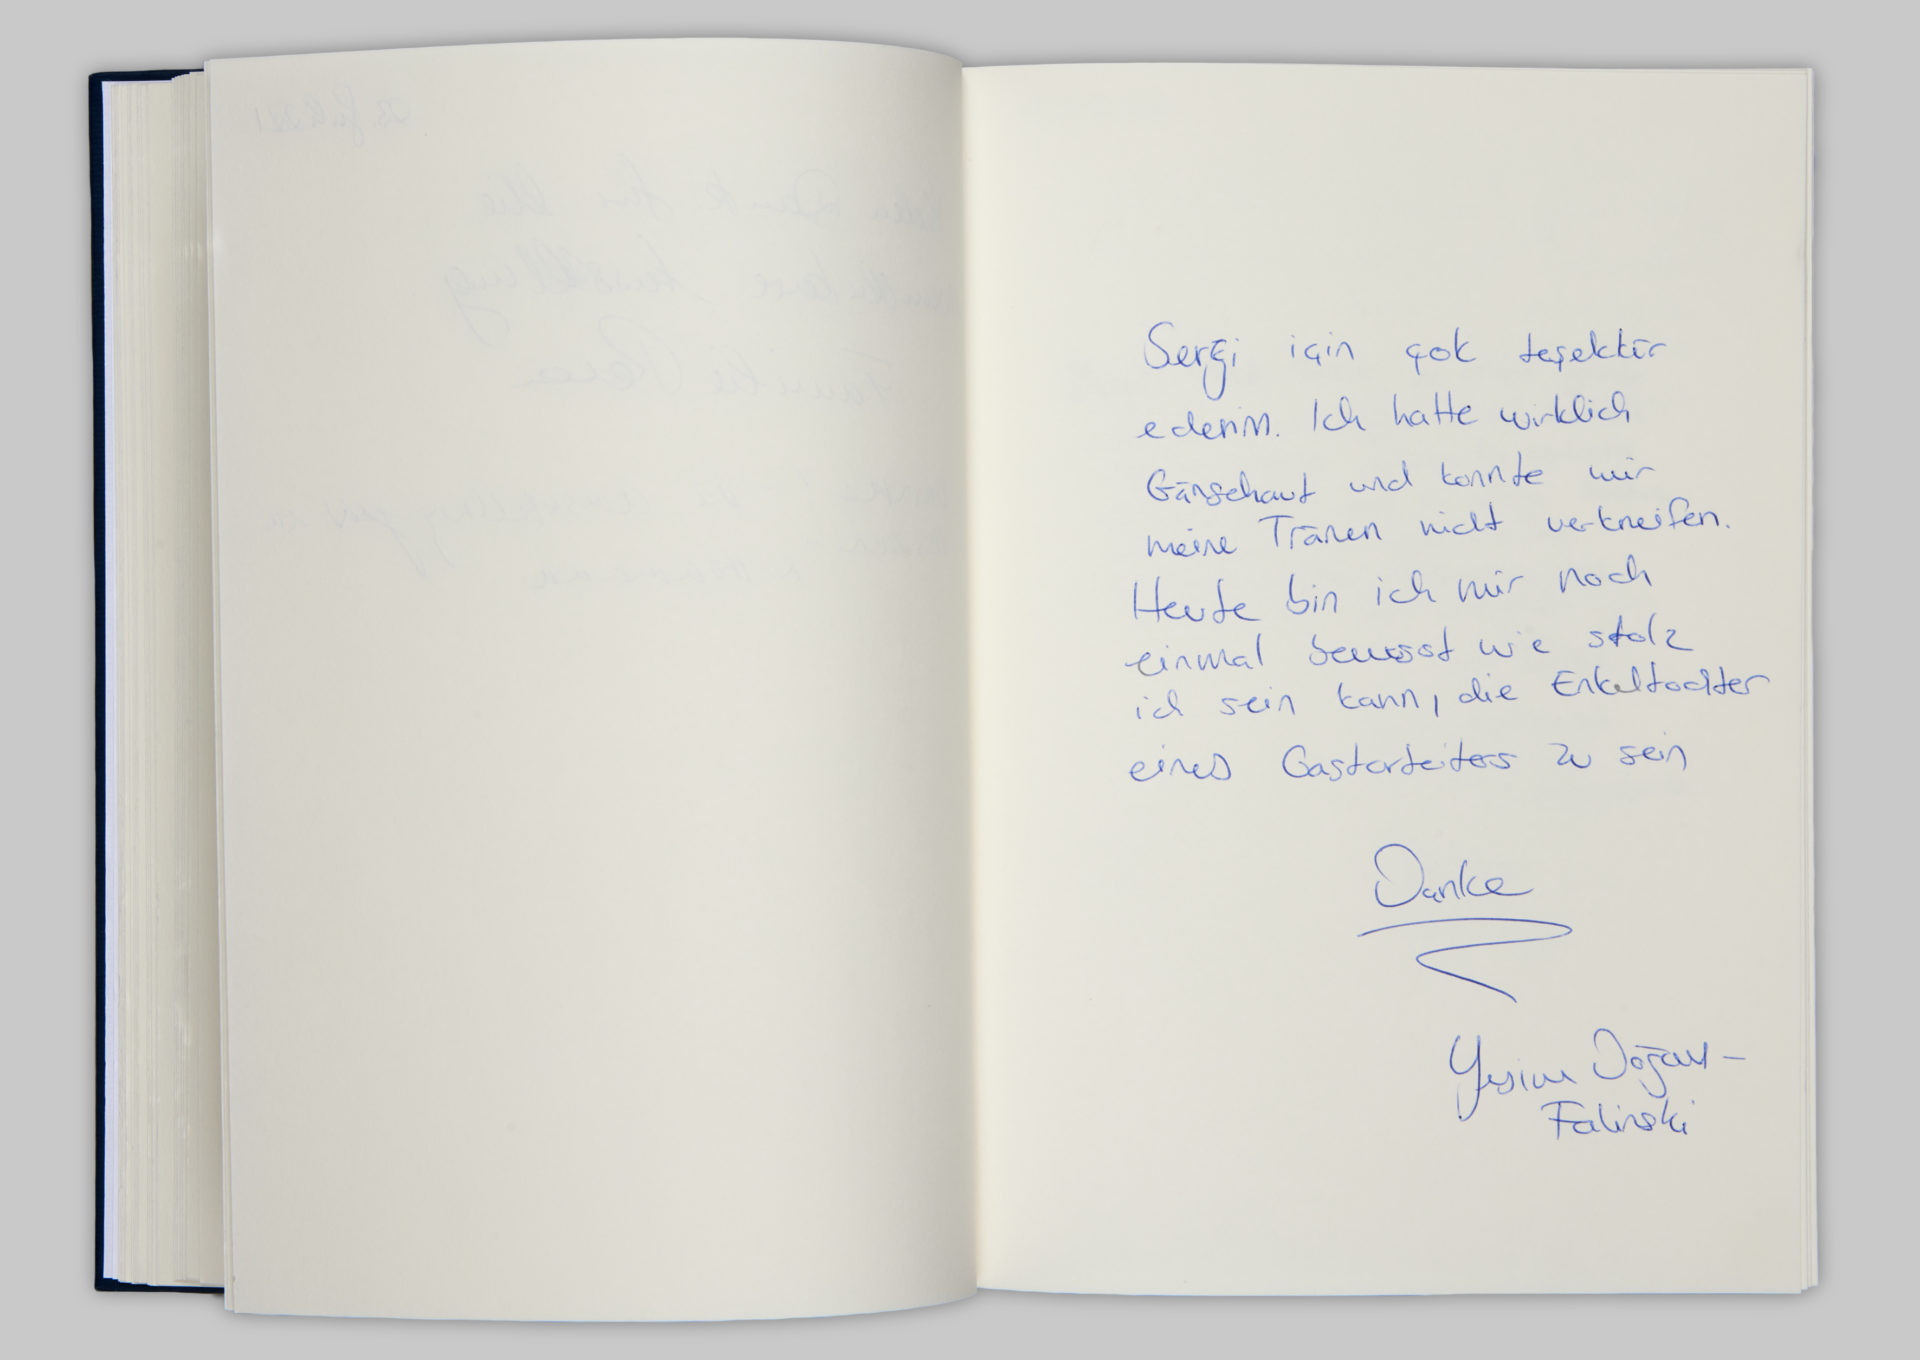 Sergi için çok teşekkür
ederim. Ich hatte wirklich
Gänsehaut und konnte mir
meine Tränen nicht verkneifen.
Heute bin ich mir noch
einmal bewusst wie stolz
ich sein kann, die Enkeltochter
eines Gastarbeiters zu sein
Danke
Yesim Doğan-
Falinski